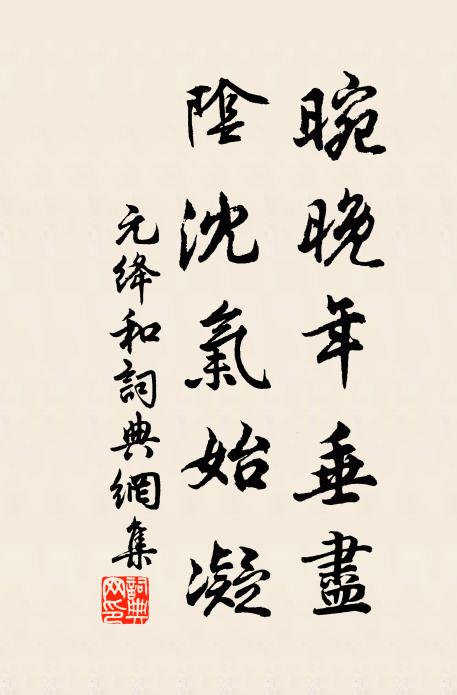 晼晚年垂盡
陰沈氣始凝
元絳和詞典網集
詞典網印